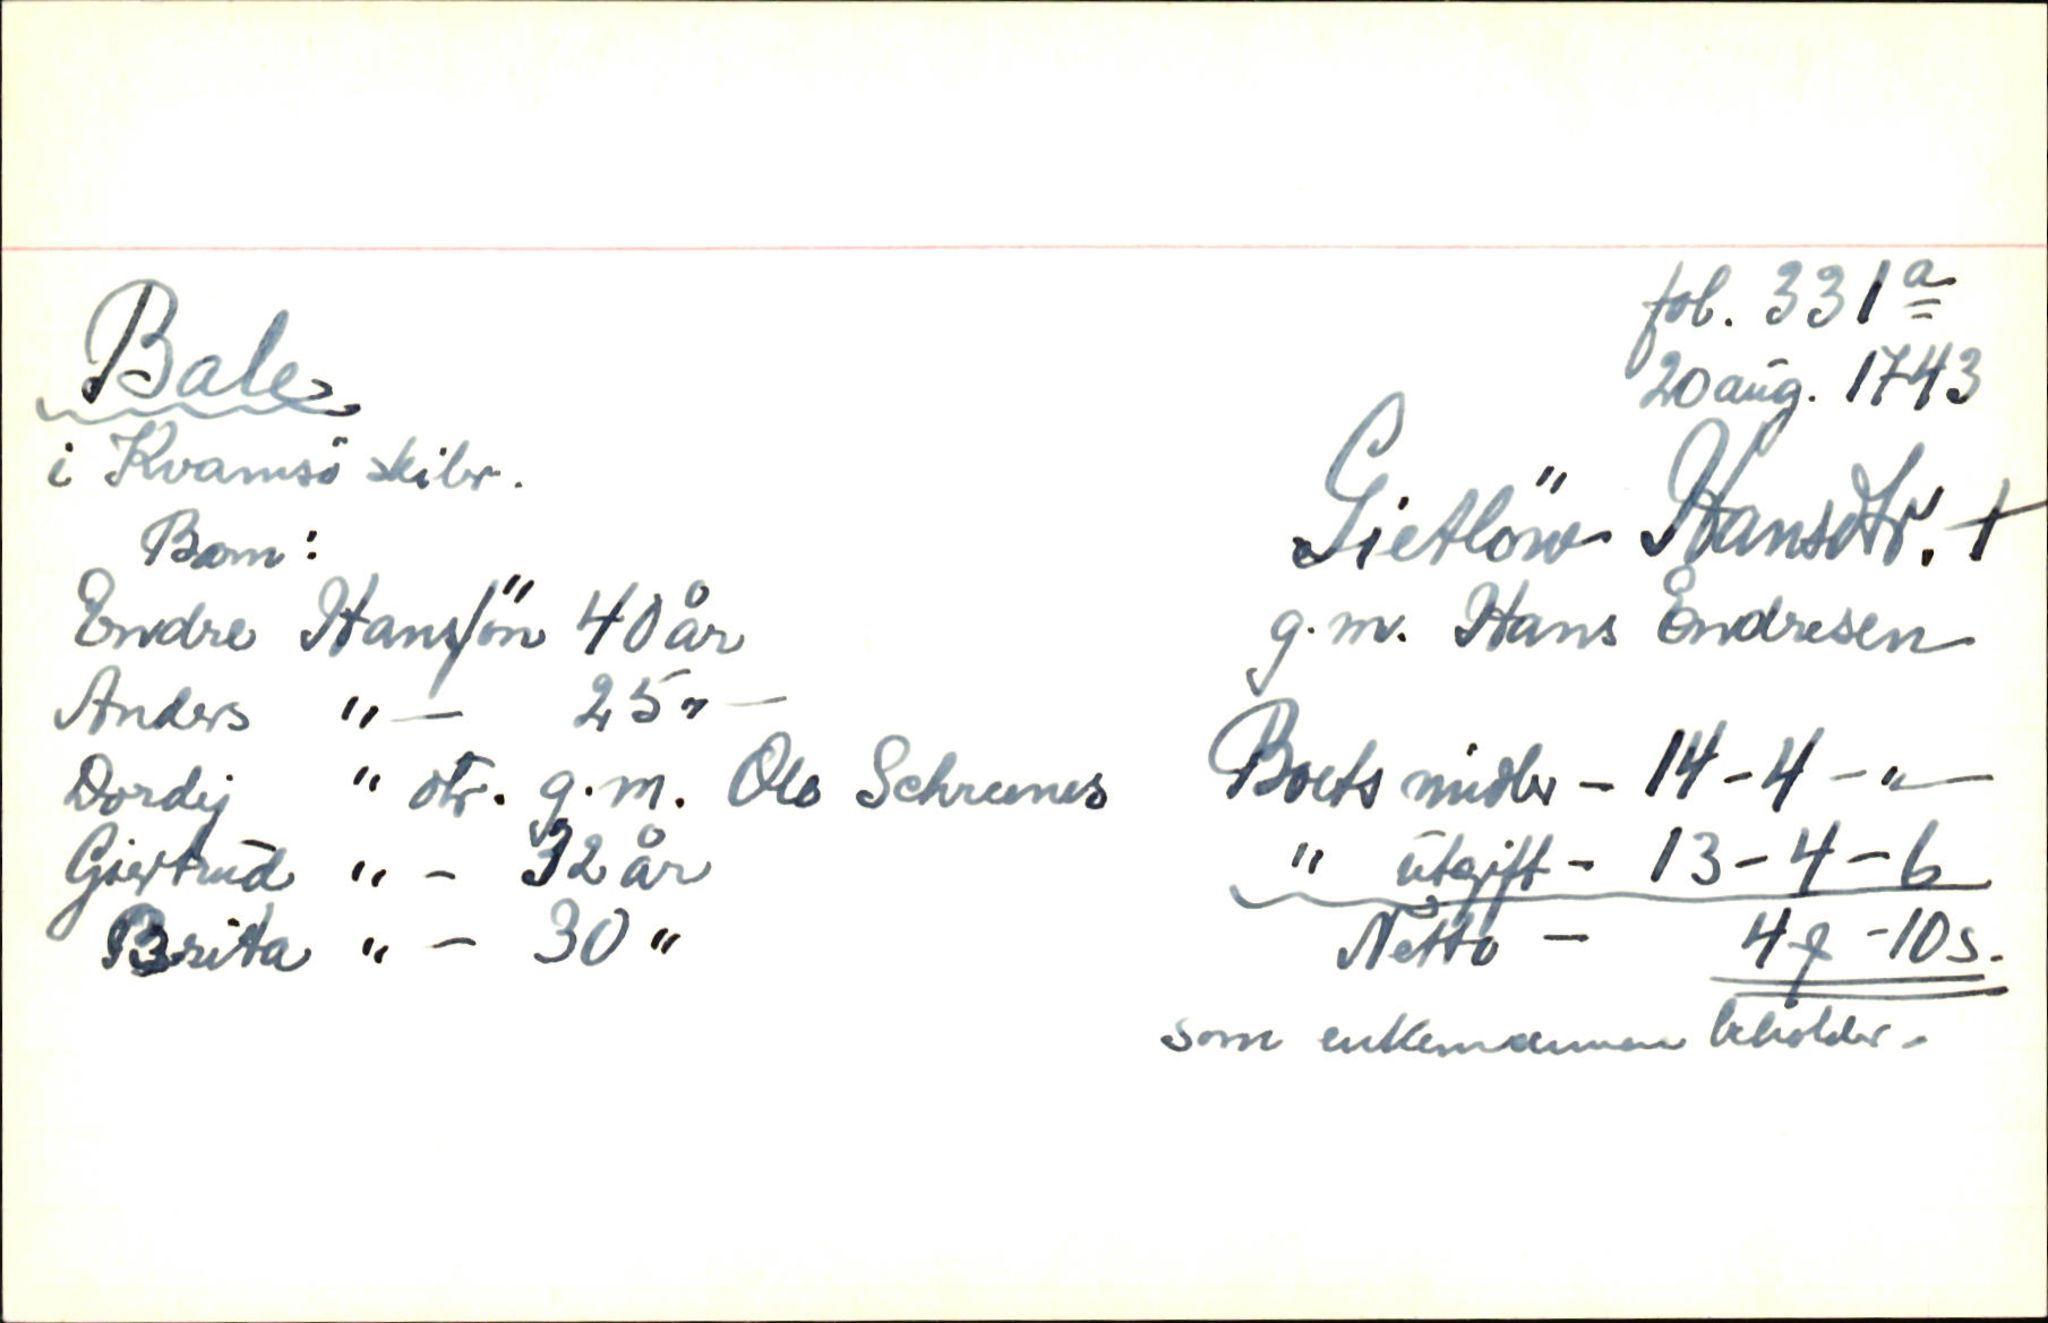 fol. 331a
20 aug. 1743
Bale
i Kvamsö skibr.
Gietlöw Hansdtr. †
g.m. Hans Endresen
Born:
Endre Hanssön 40 år
Anders " — 25 " —
Dordij " dtr. g.m. Ole Schrenes
Giertrud " - 32 år
Brita " - 30 "
Boets midler - 14 - 4 - " —
" utgift - 13 - 4 - 6
Netto - 4 - 10 s.
som enkemannen beholder.